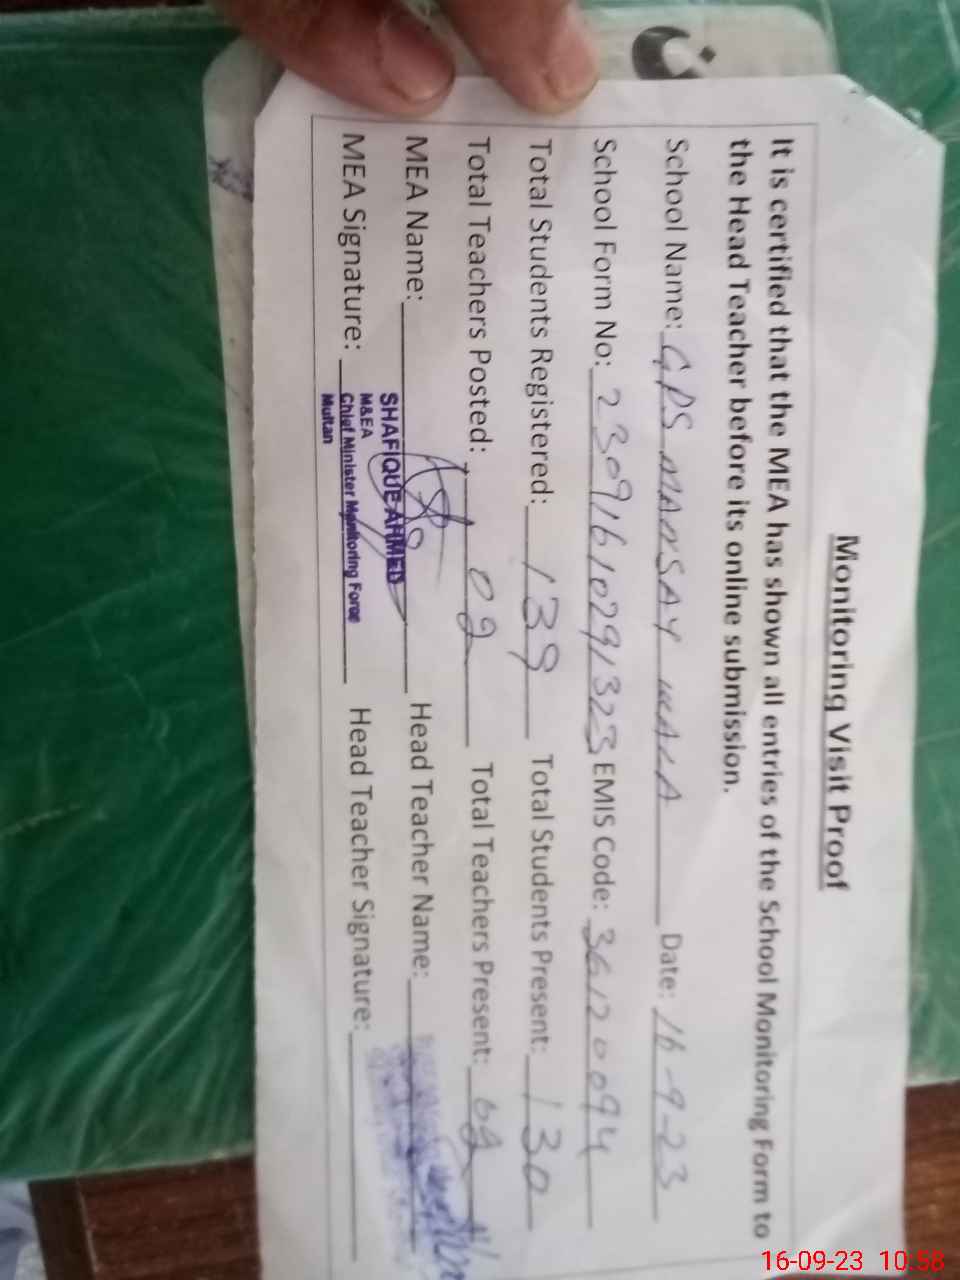 Monitoring Visit Proof
It is certified that the MEA has shown all entries of the School Monitoring Form to
the Head Teacher before its online submission.
School Name: GPS MANSAY WALA Date: 16-9-23
School Form No: 23091610291323 EMIS Code: 36120094
Total Students Registered: 139 Total Students Present: 130
Total Teachers Posted: 02 Total Teachers Present: 02
MEA Name: Head Teacher Name:
MEA Signature: Head Teacher Signature:
SHAFIQUE AHMED
M&EA
Chief Minister Monitoring Force
Multan
16-09-23 10:58